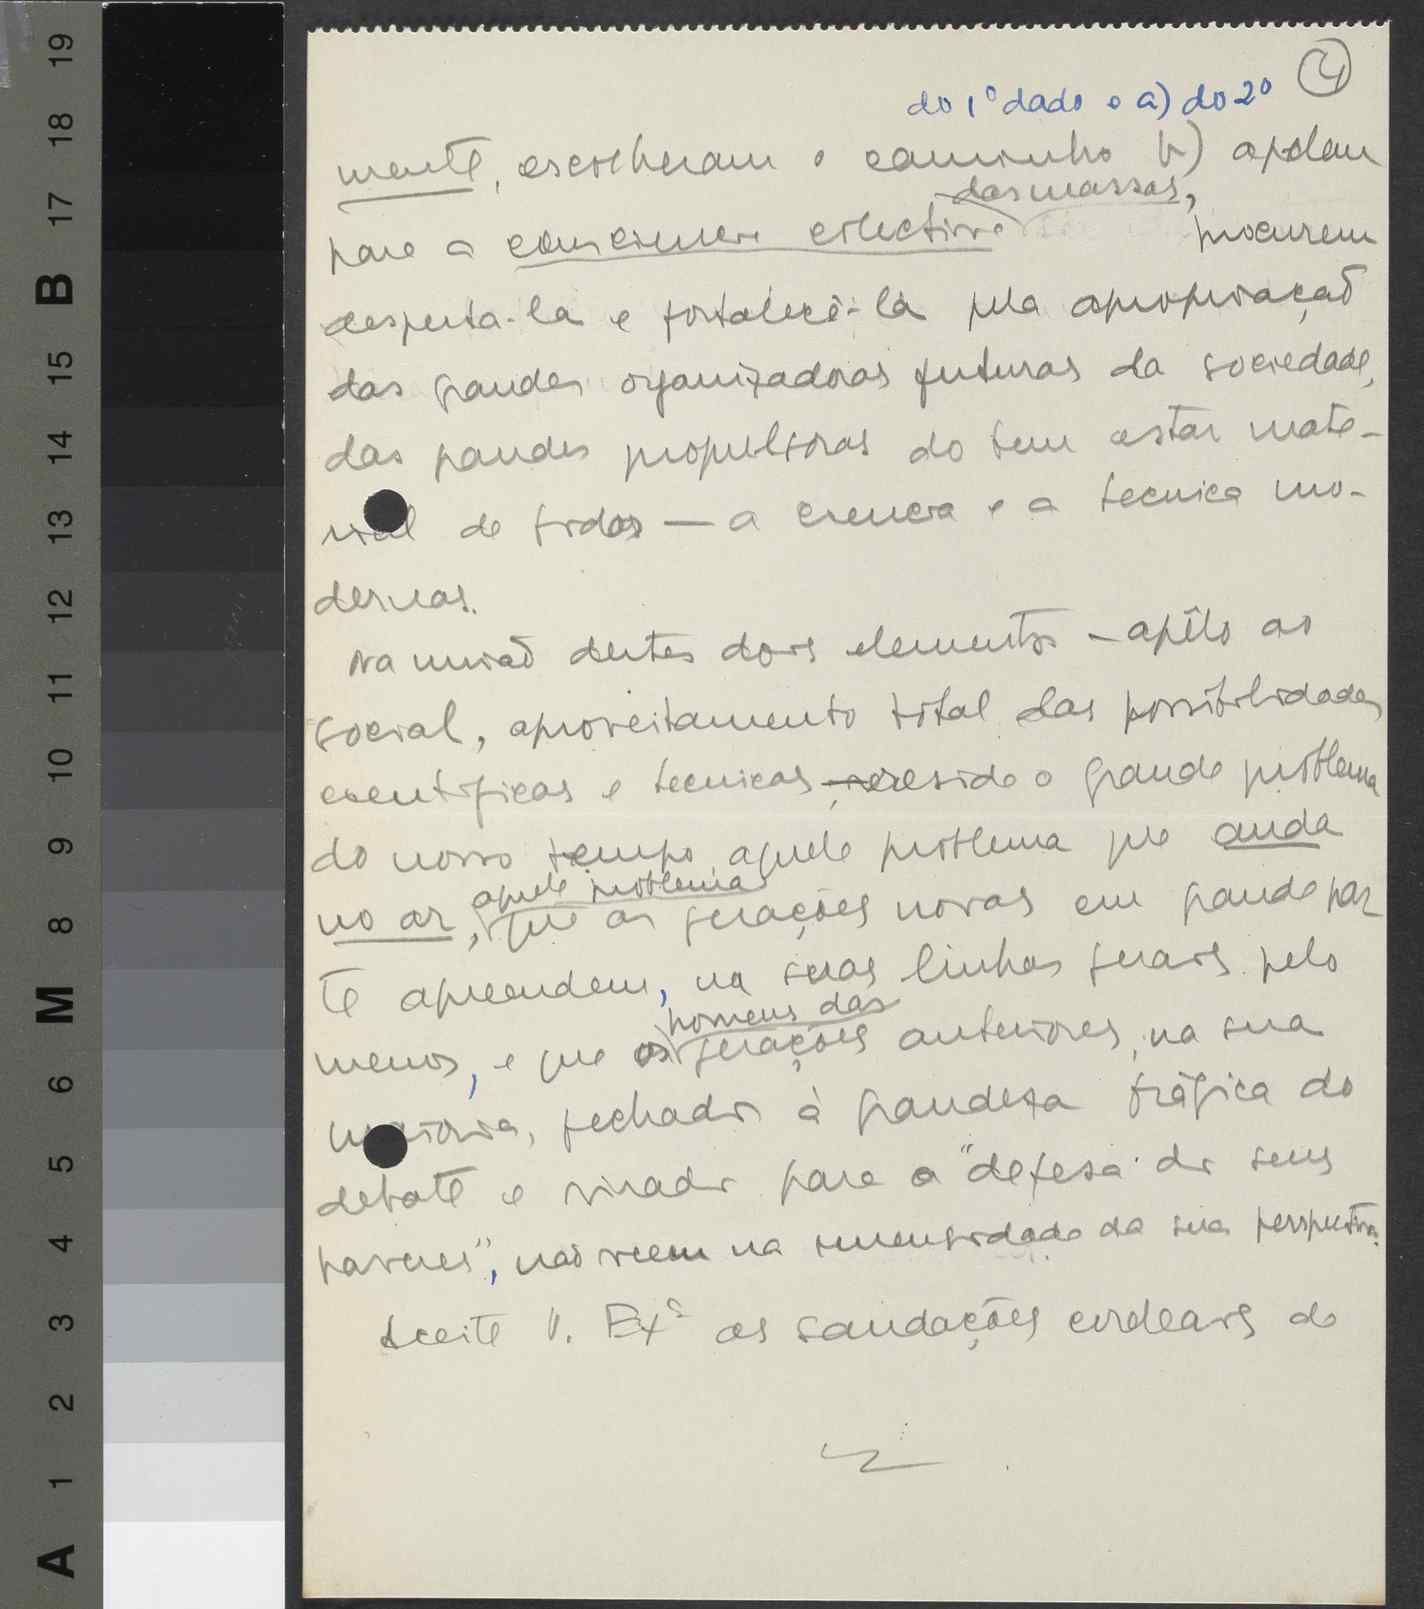 19
18
17
B
16
15
14
13
12
11
10
9
8
M
7
6
5
4
3
2
1
A
4
do 1º dado e a) do 2º
mente, escolheram o caminho b) apelam
das massas,
para a consciencia colectiva procurem
desperta-la e fortalecê-la pela apropriação
das grandes organizadoras futuras da sociedade,
das grandes propulsoras do bem estar mate-
rial de todos — a ciencia e a tecnica mo-
dernas.
Na união destes dois elementos — apêlo ao
social, aproveitamento total das possibilidades
cientificas e tecnicas reside o grande problema
do nosso tempo aquele problema que anda
aquele problema
no ar, que as gerações novas em grande par
te apreendem, na suas linhas gerais pelo
homens das
menos, e que os gerações anteriores, na sua
maioria, fechados à grandeza trágica do
debate e virados para a "defesa dos seus
haveres", não veem na imensidade da sua perspectiva.
Aceite V. Exª as saudações cordeais de